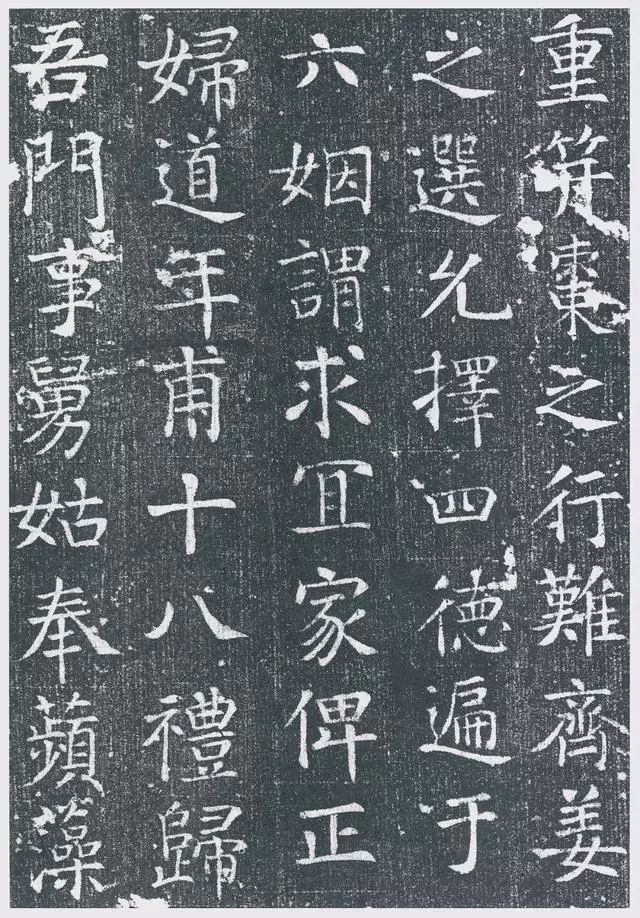 重棗之行難齊姜
之選允擇四德遍于
六姻謂求冝家俾正
婦道年甫十八禮歸
吾門事舅姑奉蘋藻